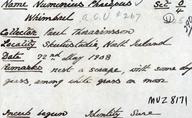 Name Numenius Phaeopus Set 0/4
Whimbrel A.O.U # 267
Collector
Locality Skutustadir, North Iceland
Date 22nd May 1908
Remarks nest a scrape, with some dry
grass among white grass on moor
MVZ 8171
Incub begun Identity Sure